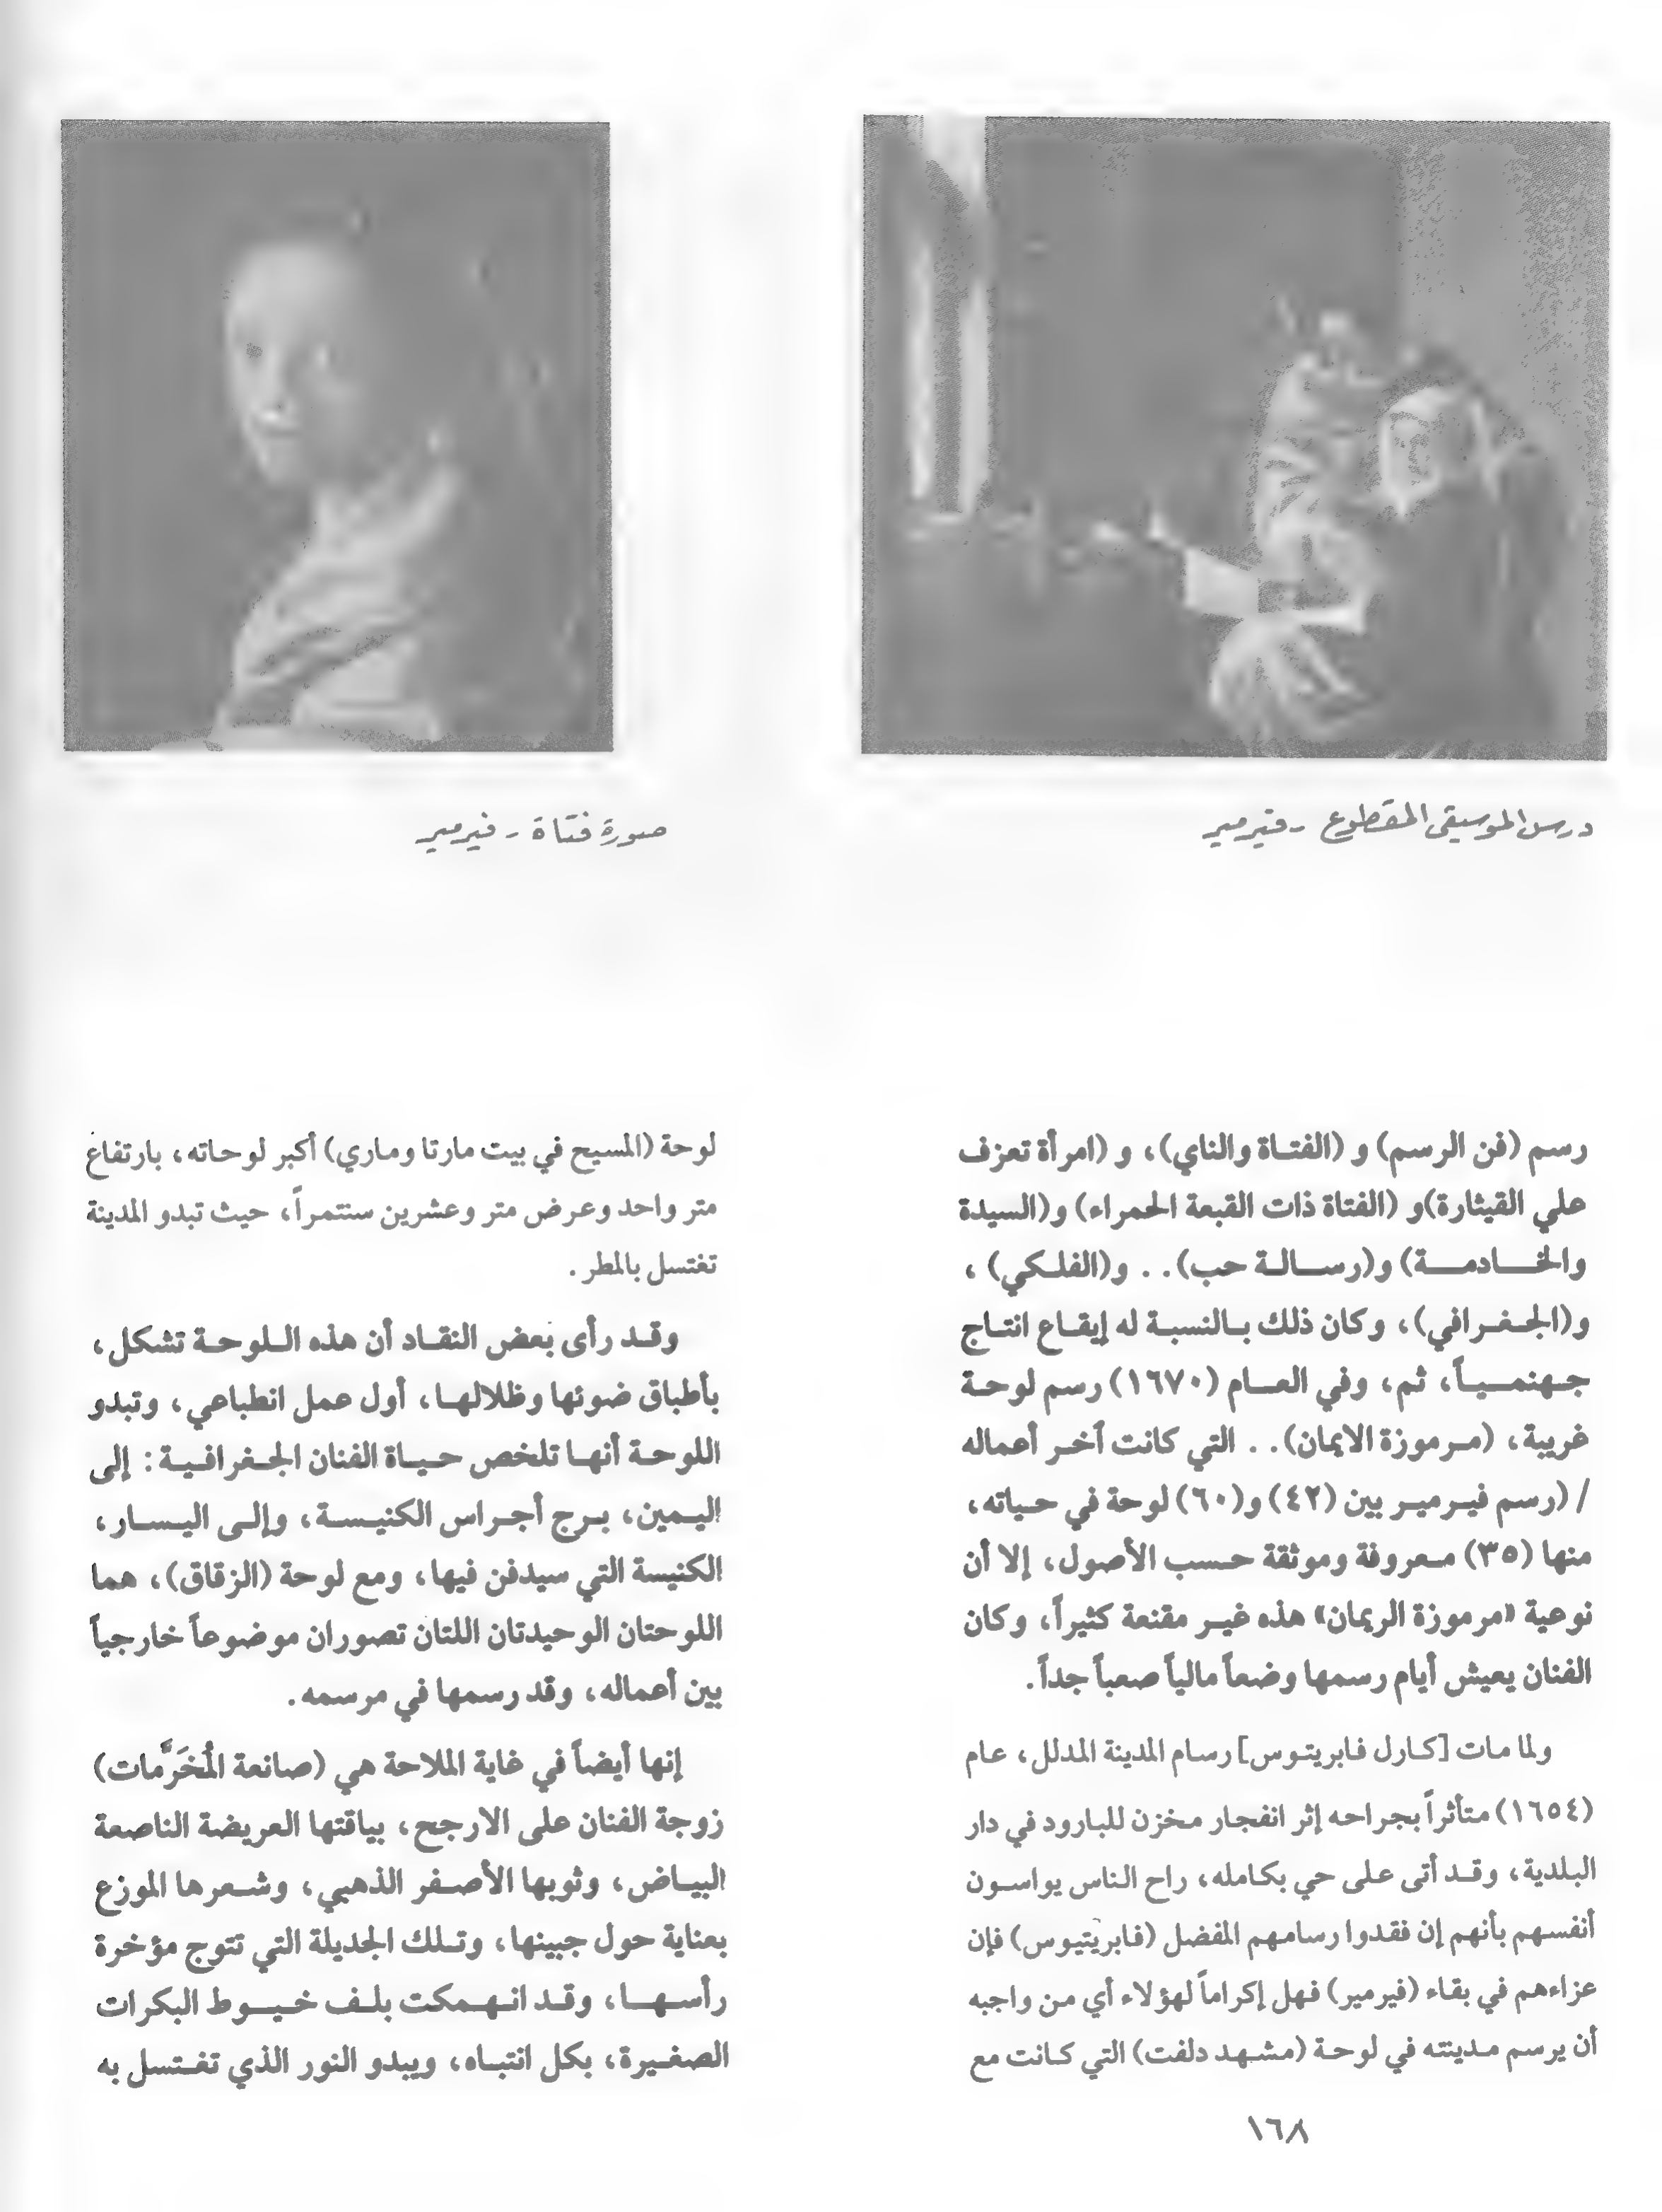 درس الموسيقى المقطوع - فيرمير
صورة فتاة - فيرمير
رسم (فن الرسم) و (الفتاة والناي)، و (امرأة تعزف
علي القيثارة)و (الفتاة ذات القبعة الحمراء) و(السيدة
والخادمة) و(رسالة حب). . و(الفلكي) ،
و(الجغرافي)، وكان ذلك بالنسبة له إيقاع انتاج
جهنمياً، ثم، وفي العام (١٦٧٠) رسم لوحة
غريبة، (مرموزة الايمان). . التي كانت آخر أعماله
/ (رسم فيرمير بين (٤٢) و(٦٠) لوحة في حياته،
منها (٣٥) معروفة وموثقة حسب الأصول، إلا أن
نوعية «مرموزة الريمان» هذه غير مقنعة كثيراً، وكان
الفنان يعيش أيام رسمها وضعاً مالياً صعباً جداً.
ولما مات [كارل فابريتوس] رسام المدينة المدلل، عام
(١٦٥٤) متأثراً بجراحه إثر انفجار مخزن للبارود في دار
البلدية، وقد أتى على حي بكامله، راح الناس يواسون
أنفسهم بأنهم إن فقدوا رسامهم المفضل (فابريتيوس) فإن
عزاءهم في بقاء (فيرمير) فهل إكراماً لهؤلاء أي من واجبه
أن يرسم مدينته في لوحة (مشهد دلفت) التي كانت مع
لوحة (المسيح في بيت مارتا وماري) أكبر لوحاته، بارتفاع
متر واحد وعرض متر وعشرين سنتمراً، حيث تبدو المدينة
تغتسل بالمطر .
وقد رأى بعض النقاد أن هذه اللوحة تشكل،
بأطباق ضوئها وظلالها، أول عمل انطباعي، وتبدو
اللوحة أنها تلخص حياة الفنان الجغرافية: إلى
اليمين، برج أجراس الكنيسة، وإلى اليسار،
الكنيسة التي سيدفن فيها، ومع لوحة (الزقاق)، هما
اللوحتان الوحيدتان اللتان تصوران موضوعاً خارجياً
بين أعماله، وقد رسمها في مرسمه.
إنها أيضاً في غاية الملاحة هي (صانعة المُخَرَّمات)
زوجة الفنان على الارجح، بياقتها العريضة الناصعة
البياض، وثوبها الأصفر الذهبي، وشعرها الموزع
بعناية حول جبينها، وتلك الجديلة التي تتوج مؤخرة
رأسها، وقد انهمكت بلف خيوط البكرات
الصغيرة، بكل انتباه، ويبدو النور الذي تغتسل به
١٦٨